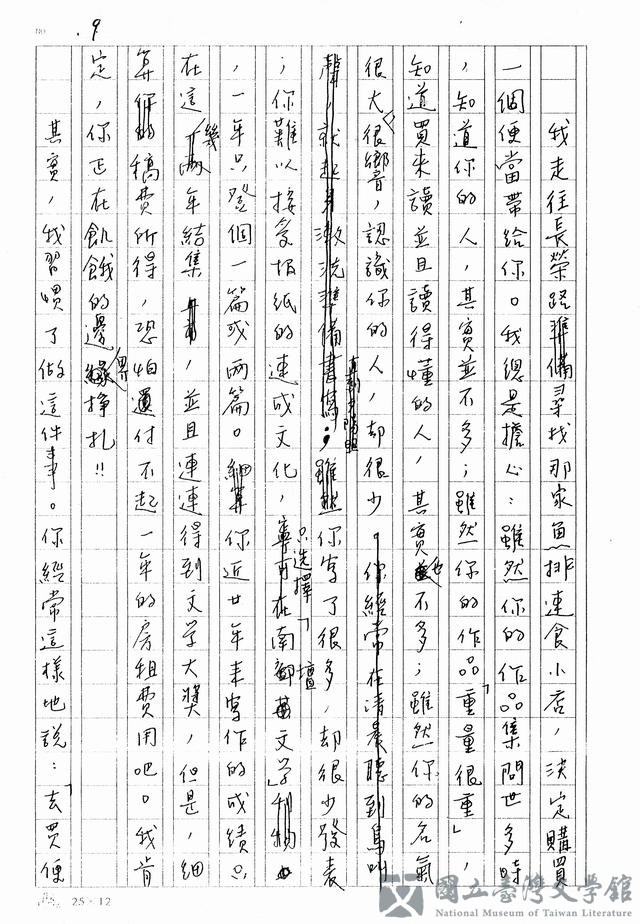 .9
我走往長榮路準備尋找那家魚排速食小店,決定購買
一個便當帶給你。我總是擔心:雖然你的作品集問世多時
,知道你的人,其實並不多;雖然你的作品「重量很重」,
知道買來讀並且讀得懂的人,其實也不多;雖然你的名氣
很大、很響音,認識你的人,却很少。你經常在清晨聽到鳥叫
聲,就起身漱洗準備書寫;雖然你寫了很多,却很少發表
;你難以接受報紙的速成文化,只選擇在南「壇」文學刊物
,一年只登個一篇或兩篇。細算你近廿年來寫作的成績。
在這幾年結集,並且連連得到文學大獎,但是,細
算你的稿費所得,恐怕還付不起一年的房租費用吧。我肯
定,你正在飢餓的邊界掙扎!!
其實,我習慣了做這件事。你經常這樣地說:「去買便
25×12
國立臺灣文學館
National Museum of Taiwan Literature